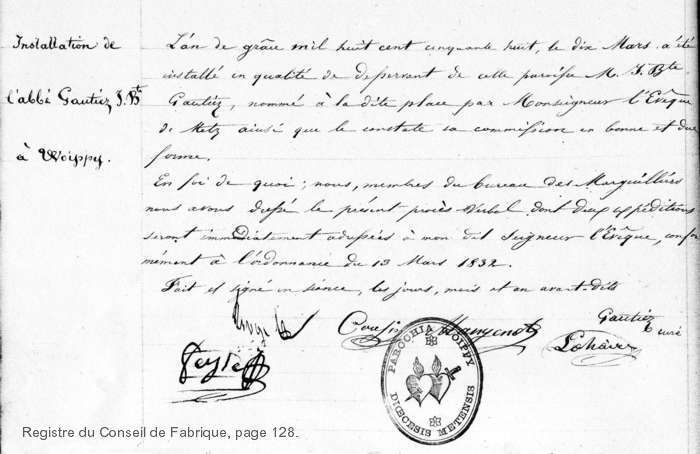 Installation de
l'abbé Gautiez J. Bte
à Woippy.
L'an de grâce mil huit cent cinquante huit, le dix Mars a été
installé en qualité de desservant de cette paroisse M. J. Bte
Gautiez, nommé à la dite place par Monseigneur l'Evêque
de Metz ainsi que le constate sa commission en bonne et due
forme.
En foi de quoi; nous, membres du bureau des Marguilliers
nous avons dressé le présent procès verbal dont deux expéditions
seront immédiatement adressées à mon dit Seigneur l'Evêque, confor
mément à l'ordonnance du 13 Mars 1832.
Fait et signé en séance, les jours, mois et an avant dits
Gautiez
curé
Mangenot
PAROCHIA WOIPPY
DIŒCESIS METENSIS
Registre du Conseil de Fabrique, page 128.